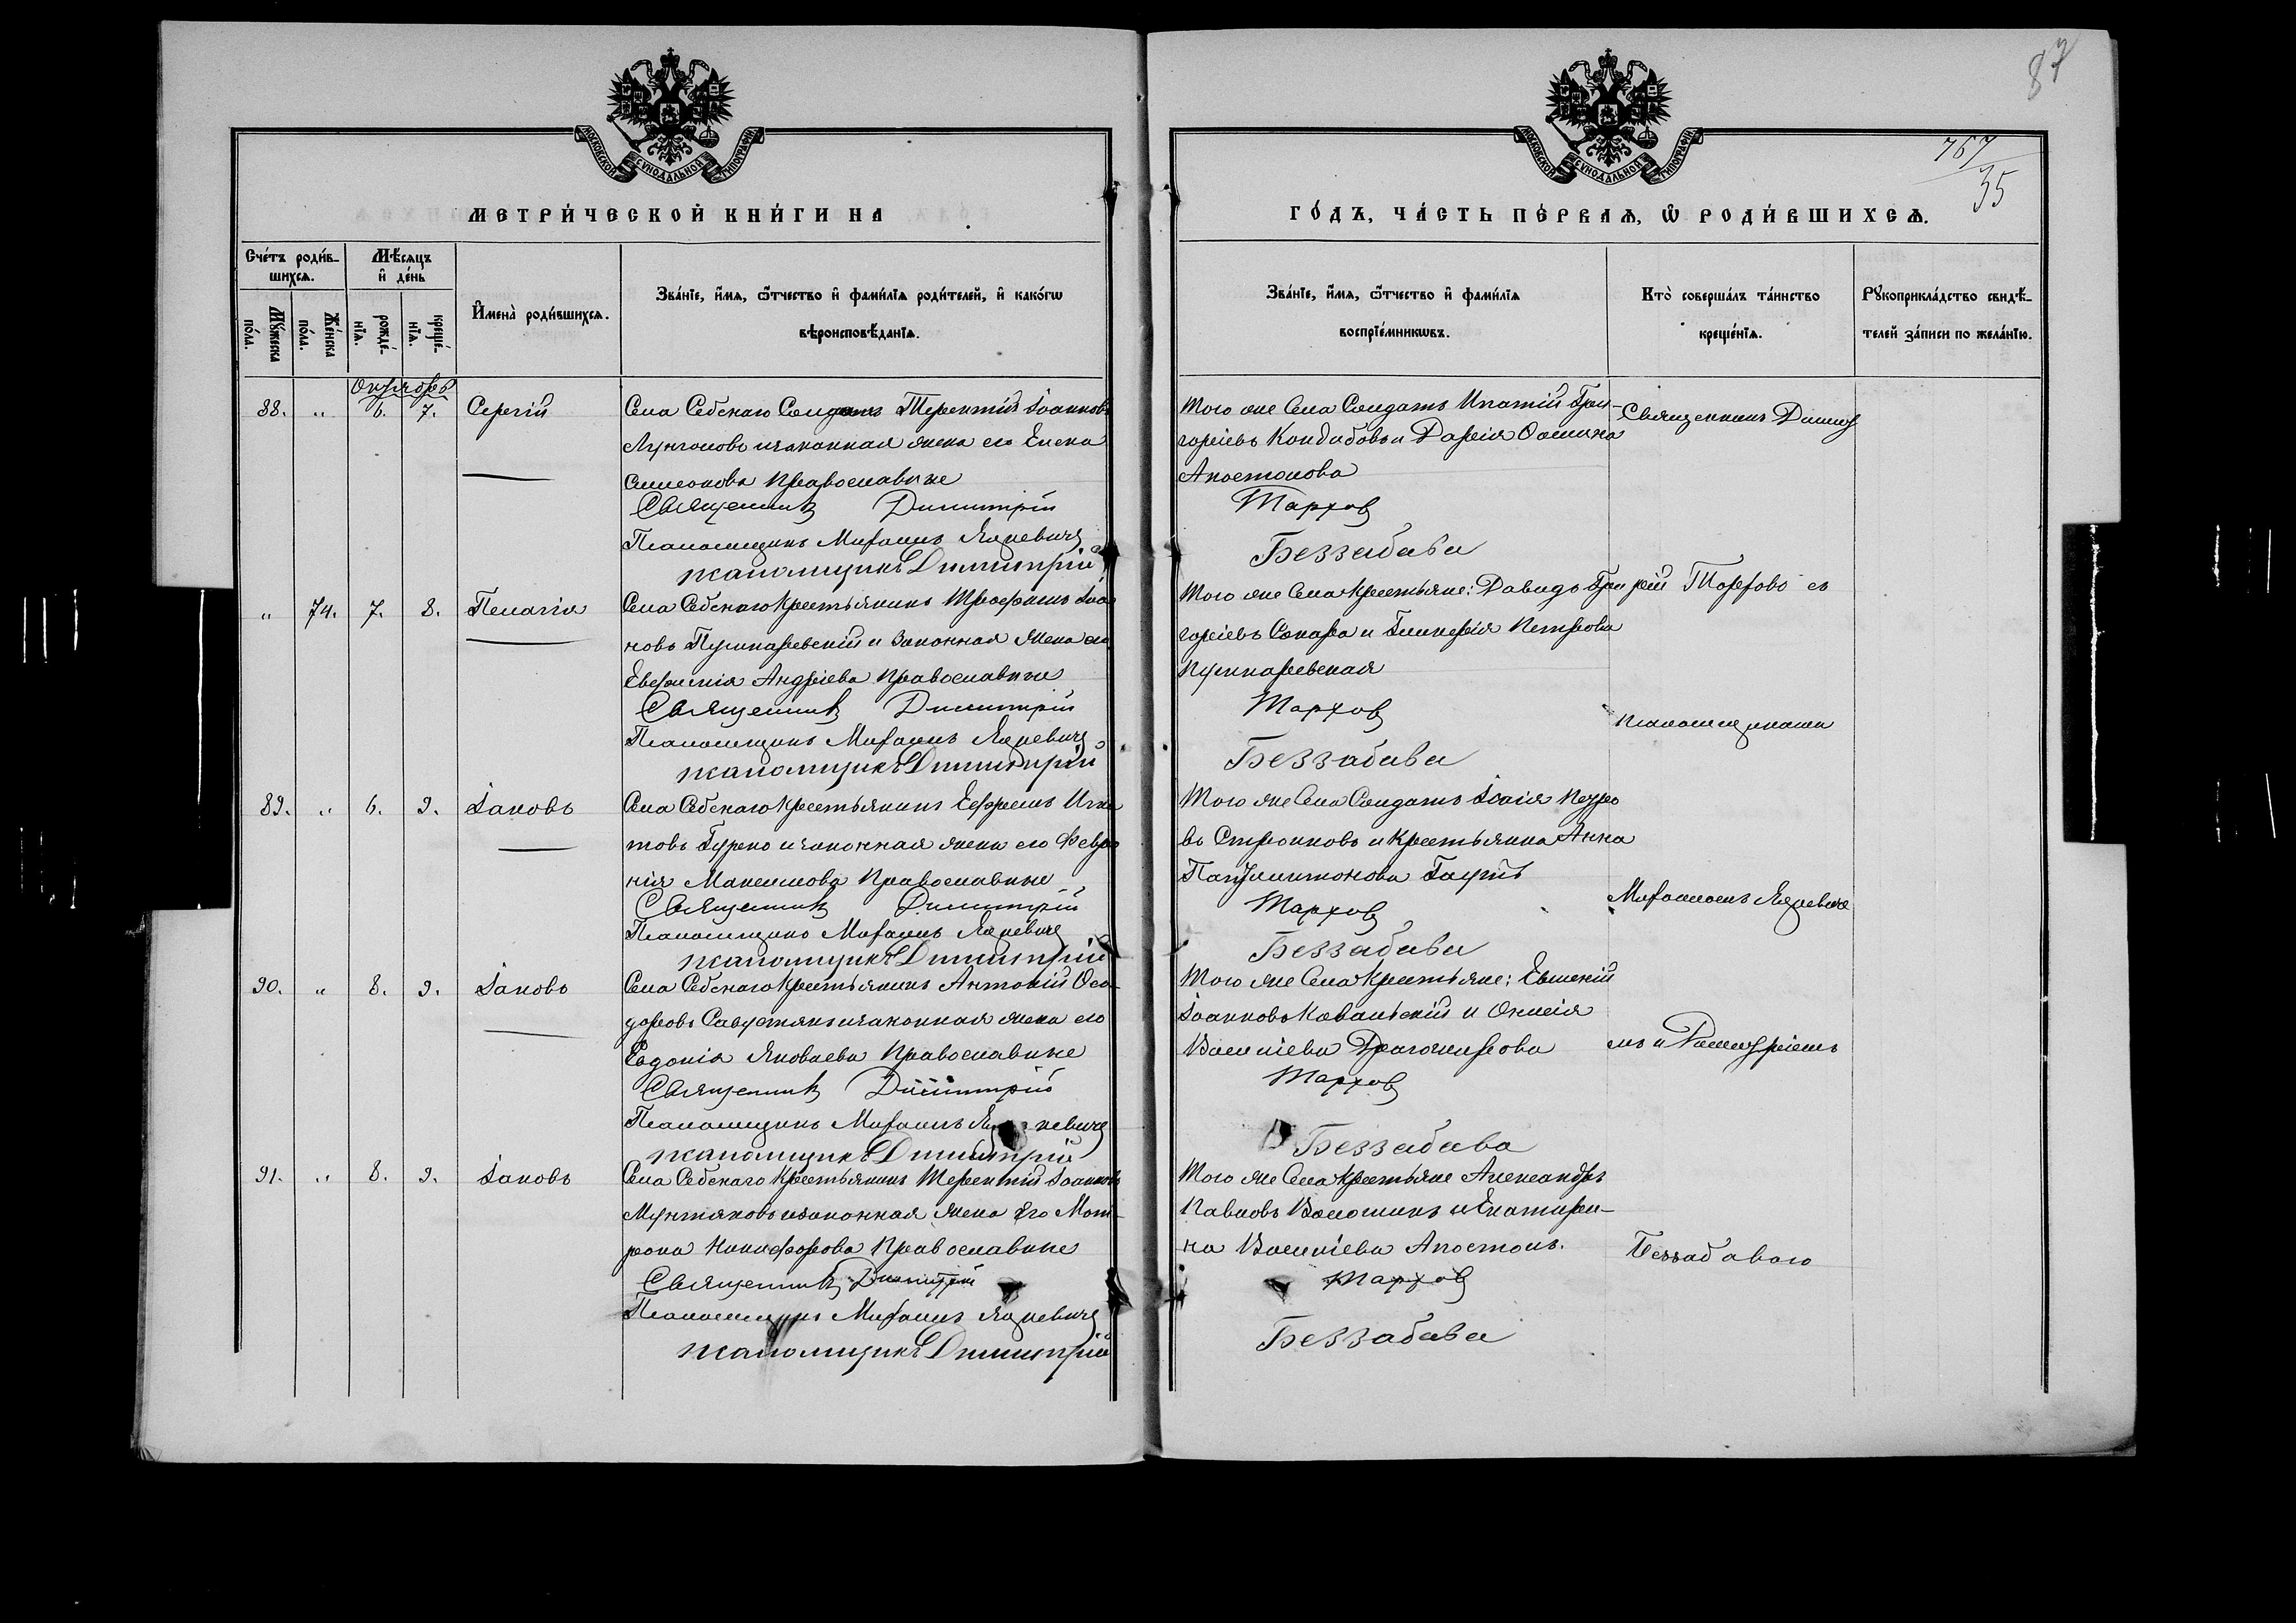 87
767
35
МОСКОВСКОЙ СУНОДАЛЬНОЙ ТИПОГРАФІИ
МОСКОВСКОЙ СУНОДАЛЬНОЙ ТИПОГРАФІИ
МЕТРИ́ЧЕСКОЙ КНИ́ГИ НА
ГО́ДЪ, ЧА́СТЬ ПЕ́РВАѦ, Ѿ РОДИ́ВШИХСѦ.
Сче́тъ роди́в-
шихсѧ.
Мꙋ́жеска по́ла.
Же́нска по́ла.
Мѣ́сѧцъ
и҆ де́нь
рожде́-
нїѧ.
креще́-
нїѧ.
И҆мена̀ роди́вшихсѧ.
Зва́нїе, и҆́мѧ, ѻ҆́тчество и҆ фами́лїѧ роди́телей, и҆ како́гѡ
вѣроисповѣ́данїѧ.
Зва́нїе, и҆́мѧ, ѻ҆́тчество и҆ фами́лїѧ
воспрїе́мникѡвъ.
Кто̀ соверша́лъ та́инство
креще́нїѧ.
Рꙋкоприкла́дство свидѣ́-
телей за́писи по жела́нїю.
Октябрь
88. „ 6. 7. Сергій
Села Ссбскаго Солдатъ Терентій Іоанновъ
Лунголовъ и законная жена его Елена
Симеонова Православные
Священникъ Димитрій
Псаломщикъ Михаилъ Яцкевичъ
псаломщикъ Димитрій
Того же Села Солдатъ Ипатій Гри-
горіевъ Кондабовъ и Дарія Ѳомина
Апостолова
Тархов
Беззабава
Священникъ Димит
„ 74. 7. 8. Пелагія
Села Ссбскаго Крестьянинъ Трофимъ Іоан
новъ Пушкаревскій и Законная Жена его
Евфимія Андріева Православные
Священникъ Димитрій
Псаломщикъ Михаилъ Яцкевичъ
псаломщикъ Димитрій
Того же Села Крестьяне: Давидъ Гри
горіевъ Сокара и Гликерія Петрова
Пушкаревская
Тархов
Беззабава
рій Торховъ съ
псаломщиками
89. „ 6. 9. Іаковъ
Села Ссбскаго Крестьянинъ Ефремъ Игна
товъ Гурено и законная жена его Февро
нія Максимова Православные
Священникъ Димитрій
Псаломщикъ Михаилъ Яцкевичъ
псаломщикъ Димитрій
Того же Села Солдатъ Ісаія Петро
въ Строиновъ и Крестьянка Анна
Тархов
Беззабава
Михаиломъ Яцкевиче
90. „ 8. 9. Іаковъ
Села Ссбскаго Крестьянинъ Антоній Ѳео-
доровъ и законная жена его
Евдокія Яковлева Православные
Священникъ Димитрій
Псаломщикъ Михаилъ Яцкевичъ
псаломщикъ Димитрій
Того же Села Крестьяне: Евменій
Іоанновъ Ковальскій и Оксенія
Василіева Драгомирова
Тархов
Беззабава
мъ и Димитріемъ
91. „ 8. 9. Іаковъ
Села Ссбскаго Крестьянинъ Терентій Іоанновъ
Мунтяновъ и законная жена его Мат-
рона Никифорова Православные
Священникъ Димитрій
Псаломщикъ Михаилъ Яцкевичъ
псаломщикъ Димитрій
Того же Села Крестьяне Александръ
Павловъ Волошинъ и Екатери-
на Василіева Апостолъ.
Тархов
Беззабава
Беззабавою